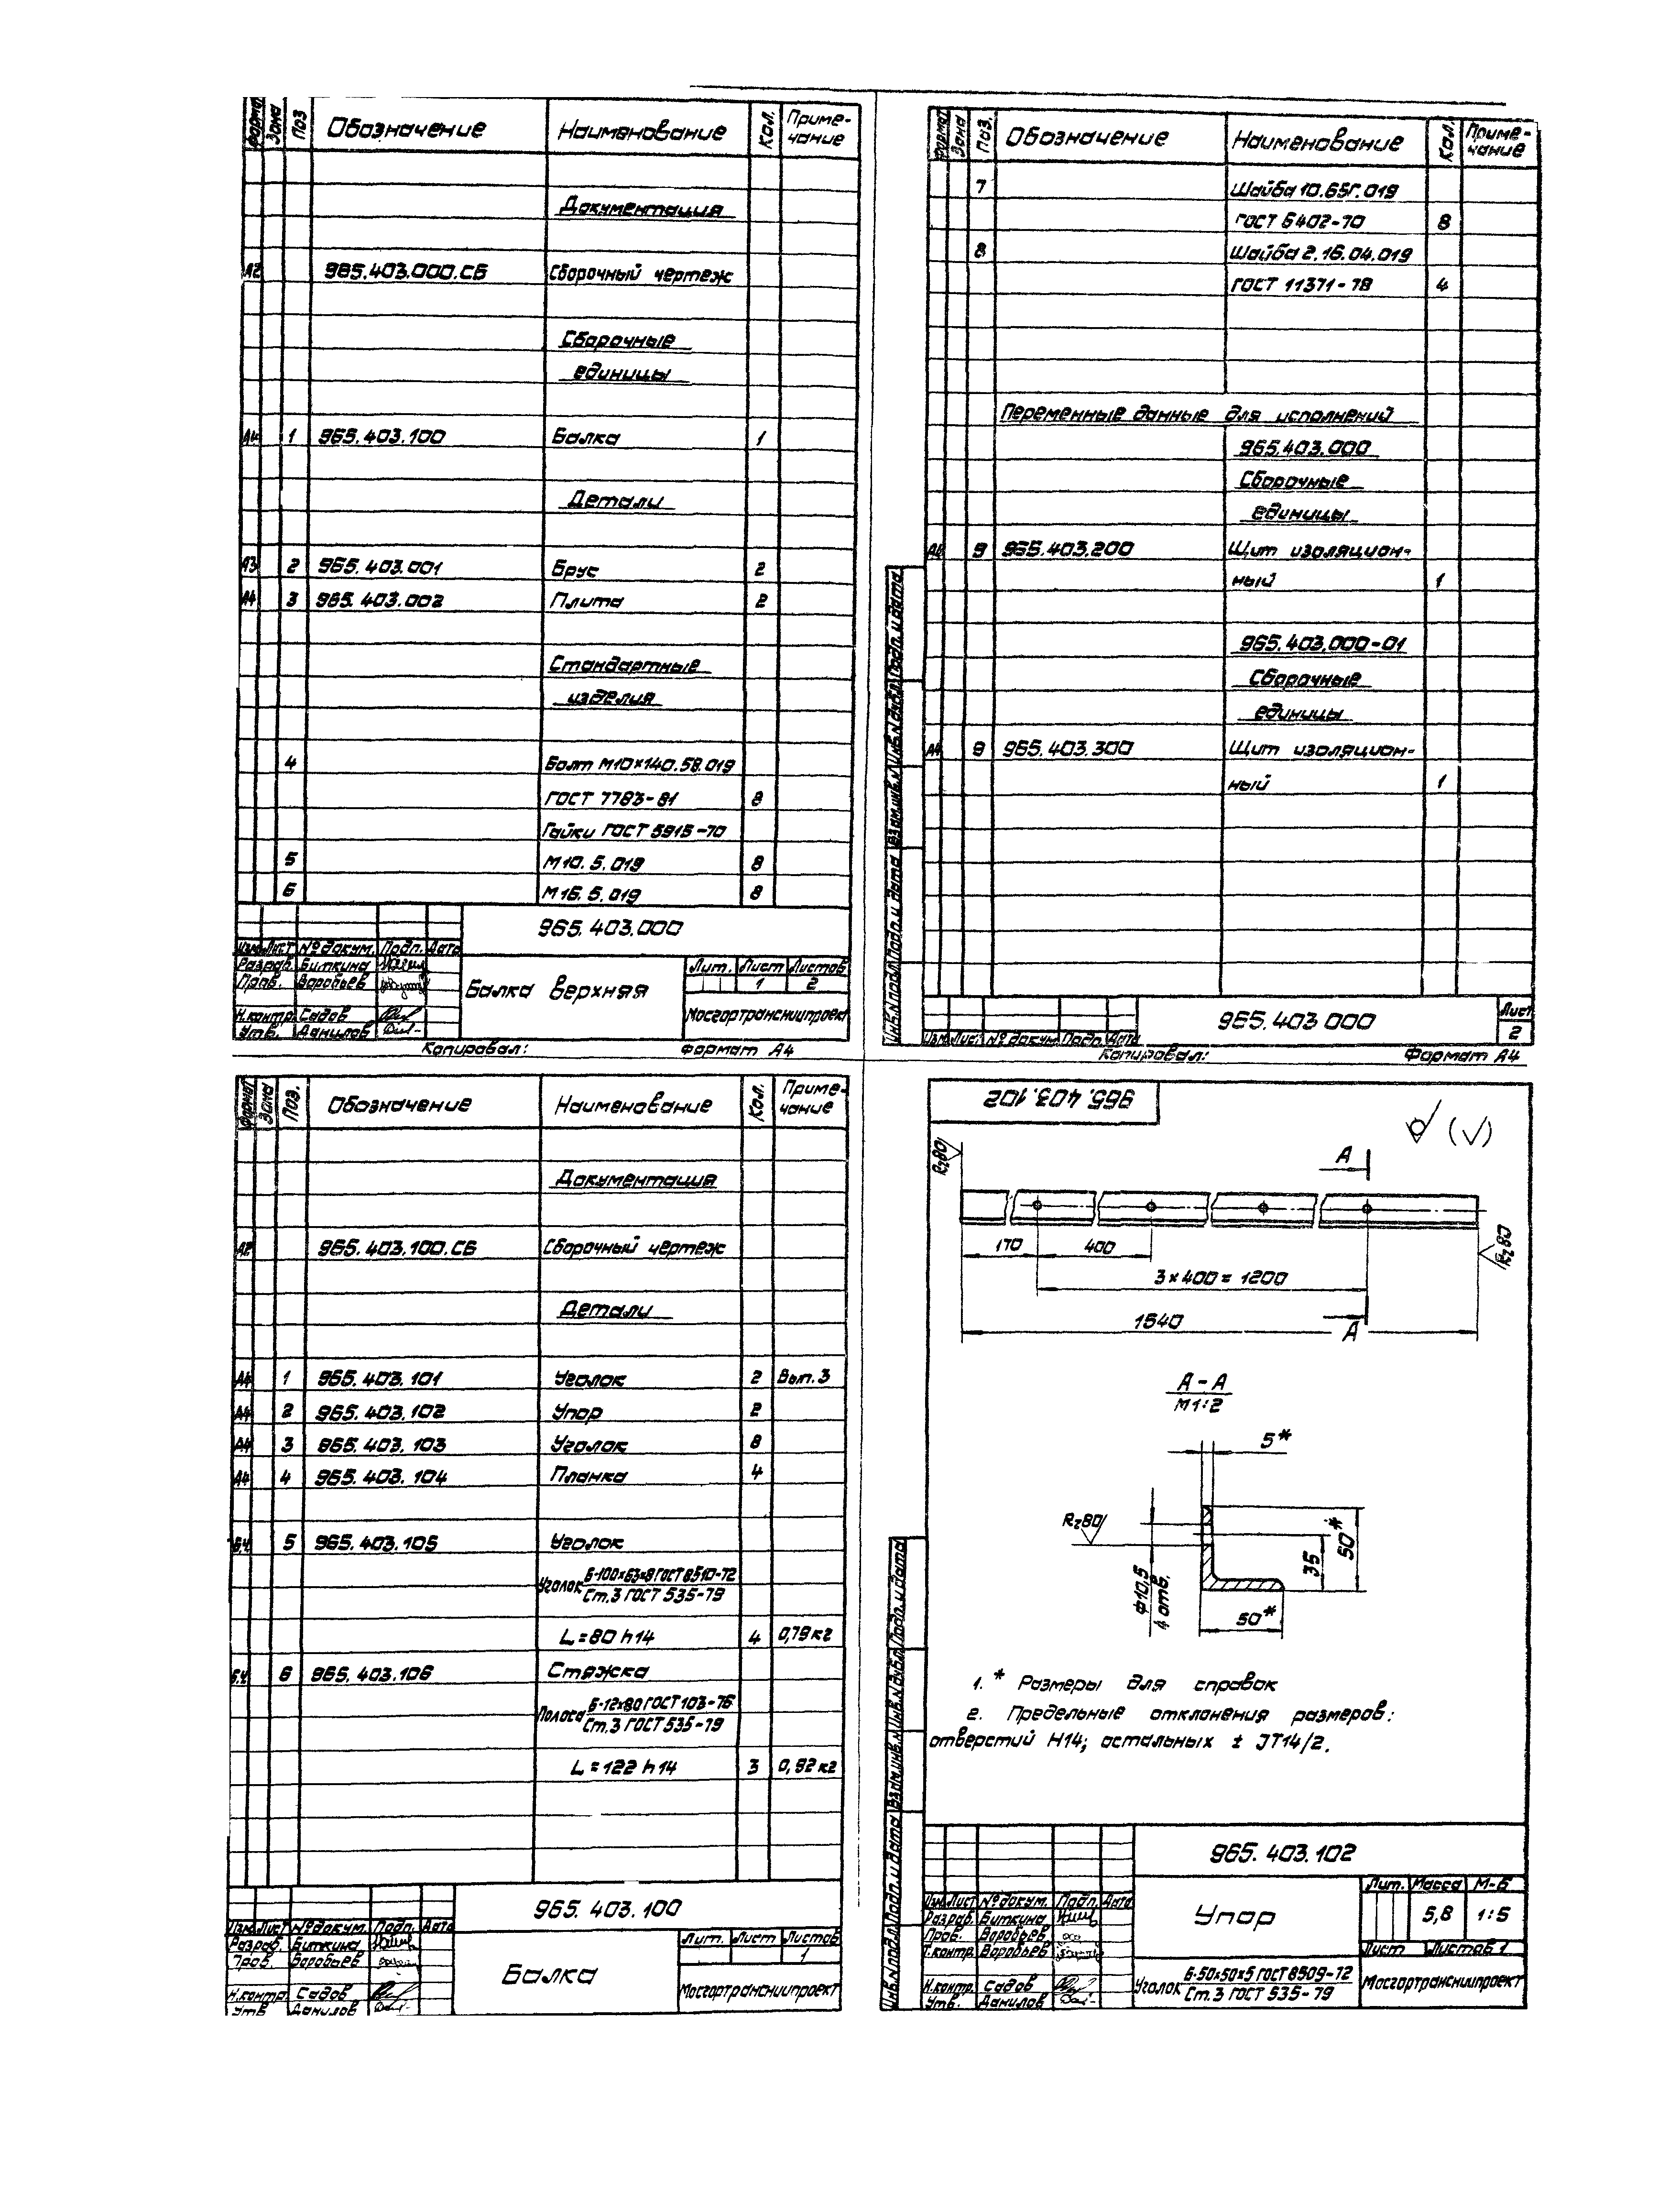 Формат Зона Поз Обозначение Наименование Кол. Приме-
чание
Документация
А2 965.403.000.СБ Сборочный чертеж
Сборочные
единицы
А4 1 965.403.100 Балка 1
Детали
А3 2 965.403.001 Брус 2
А4 3 965.403.002 Плита 2
Стандартные
изделия
4 Болт М10×140.58.019
ГОСТ 7783-81 8
Гайки ГОСТ 5915-70
5 М10.5.019 8
6 М16.5.019 8
965.403.000
Изм. Лист № докум. Подп. Дата
Разраб. Биткина
Пров. Воробьев
Н.контр. Садов
Утв. Данилов
Балка верхняя
Лит. Лист Листов
1 2
Мосгортрансниипроект
Копировал: Формат А4
Формат Зона Поз. Обозначение Наименование Кол. Приме-
чание
7 Шайба 10.65Г.019
ГОСТ 6402-70 8
8 Шайба 2.16.04.019
ГОСТ 11371-78 4
Переменные данные для исполнений
965.403.000
Сборочные
единицы
9 965.403.200 Щит изоляцион-
ный 1
965.403.000-01
Сборочные
единицы
А4 9 965.403.300 Щит изоляцион-
ный 1
Инв.№подл. Подп. и дата Взам.инв.№ Инв.№дубл. Подп. и дата
Изм. Лист № докум. Подп. Дата
965.403 000
Лист
2
Копировал: Формат А4
Формат Зона Поз. Обозначение Наименование Кол. Приме-
чание
Документация
А2 965.403.100.СБ Сборочный чертеж
Детали
А4 1 965.403.101 Уголок 2 Вып.3
А4 2 965.403.102 Упор 2
А4 3 965.403.103 Уголок 8
А4 4 965.403.104 Планка 4
Б.Ч. 5 965.403.105 Уголок
Уголок Б-100×63×8 ГОСТ 8510-72
Ст.3 ГОСТ 535-79
L=80 h14 4 0,79кг
Б.Ч. 6 965.403.106 Стяжка
Полоса Б-12×80 ГОСТ 103-76
Ст.3 ГОСТ 535-79
L=122 h14 3 0,92кг
965.403.100
Изм. Лист № докум. Подп. Дата
Разраб. Биткина
Пров. Воробьев
Н.контр. Садов
Утв Данилов
Балка
Лит. Лист Листов
1
Мосгортрансниипроект
965.403.102
(√)
Rz80
А
Rz80
170 400
3×400=1200
1540
А
А-А
М1:2
5*
Rz80
Ф10,5
4 отв.
35
50*
50*
1. * Размеры для справок
2. Предельные отклонения размеров:
отверстий Н14; остальных ± JT14/2.
Инв.№подл. Подп. и дата Взам.инв.№ Инв.№дубл. Подп. и дата
965.403.102
Изм. Лист № докум. Подп. Дата
Разраб. Биткина
Пров. Воробьев
Т.контр. Воробьев
Н.контр. Садов
Утв. Данилов
Упор
Лит. Масса М-б
5,8 1:5
Лист Листов 1
Уголок Б-50×50×5 ГОСТ 8509-72
Ст.3 ГОСТ 535-79
Мосгортрансниипроект